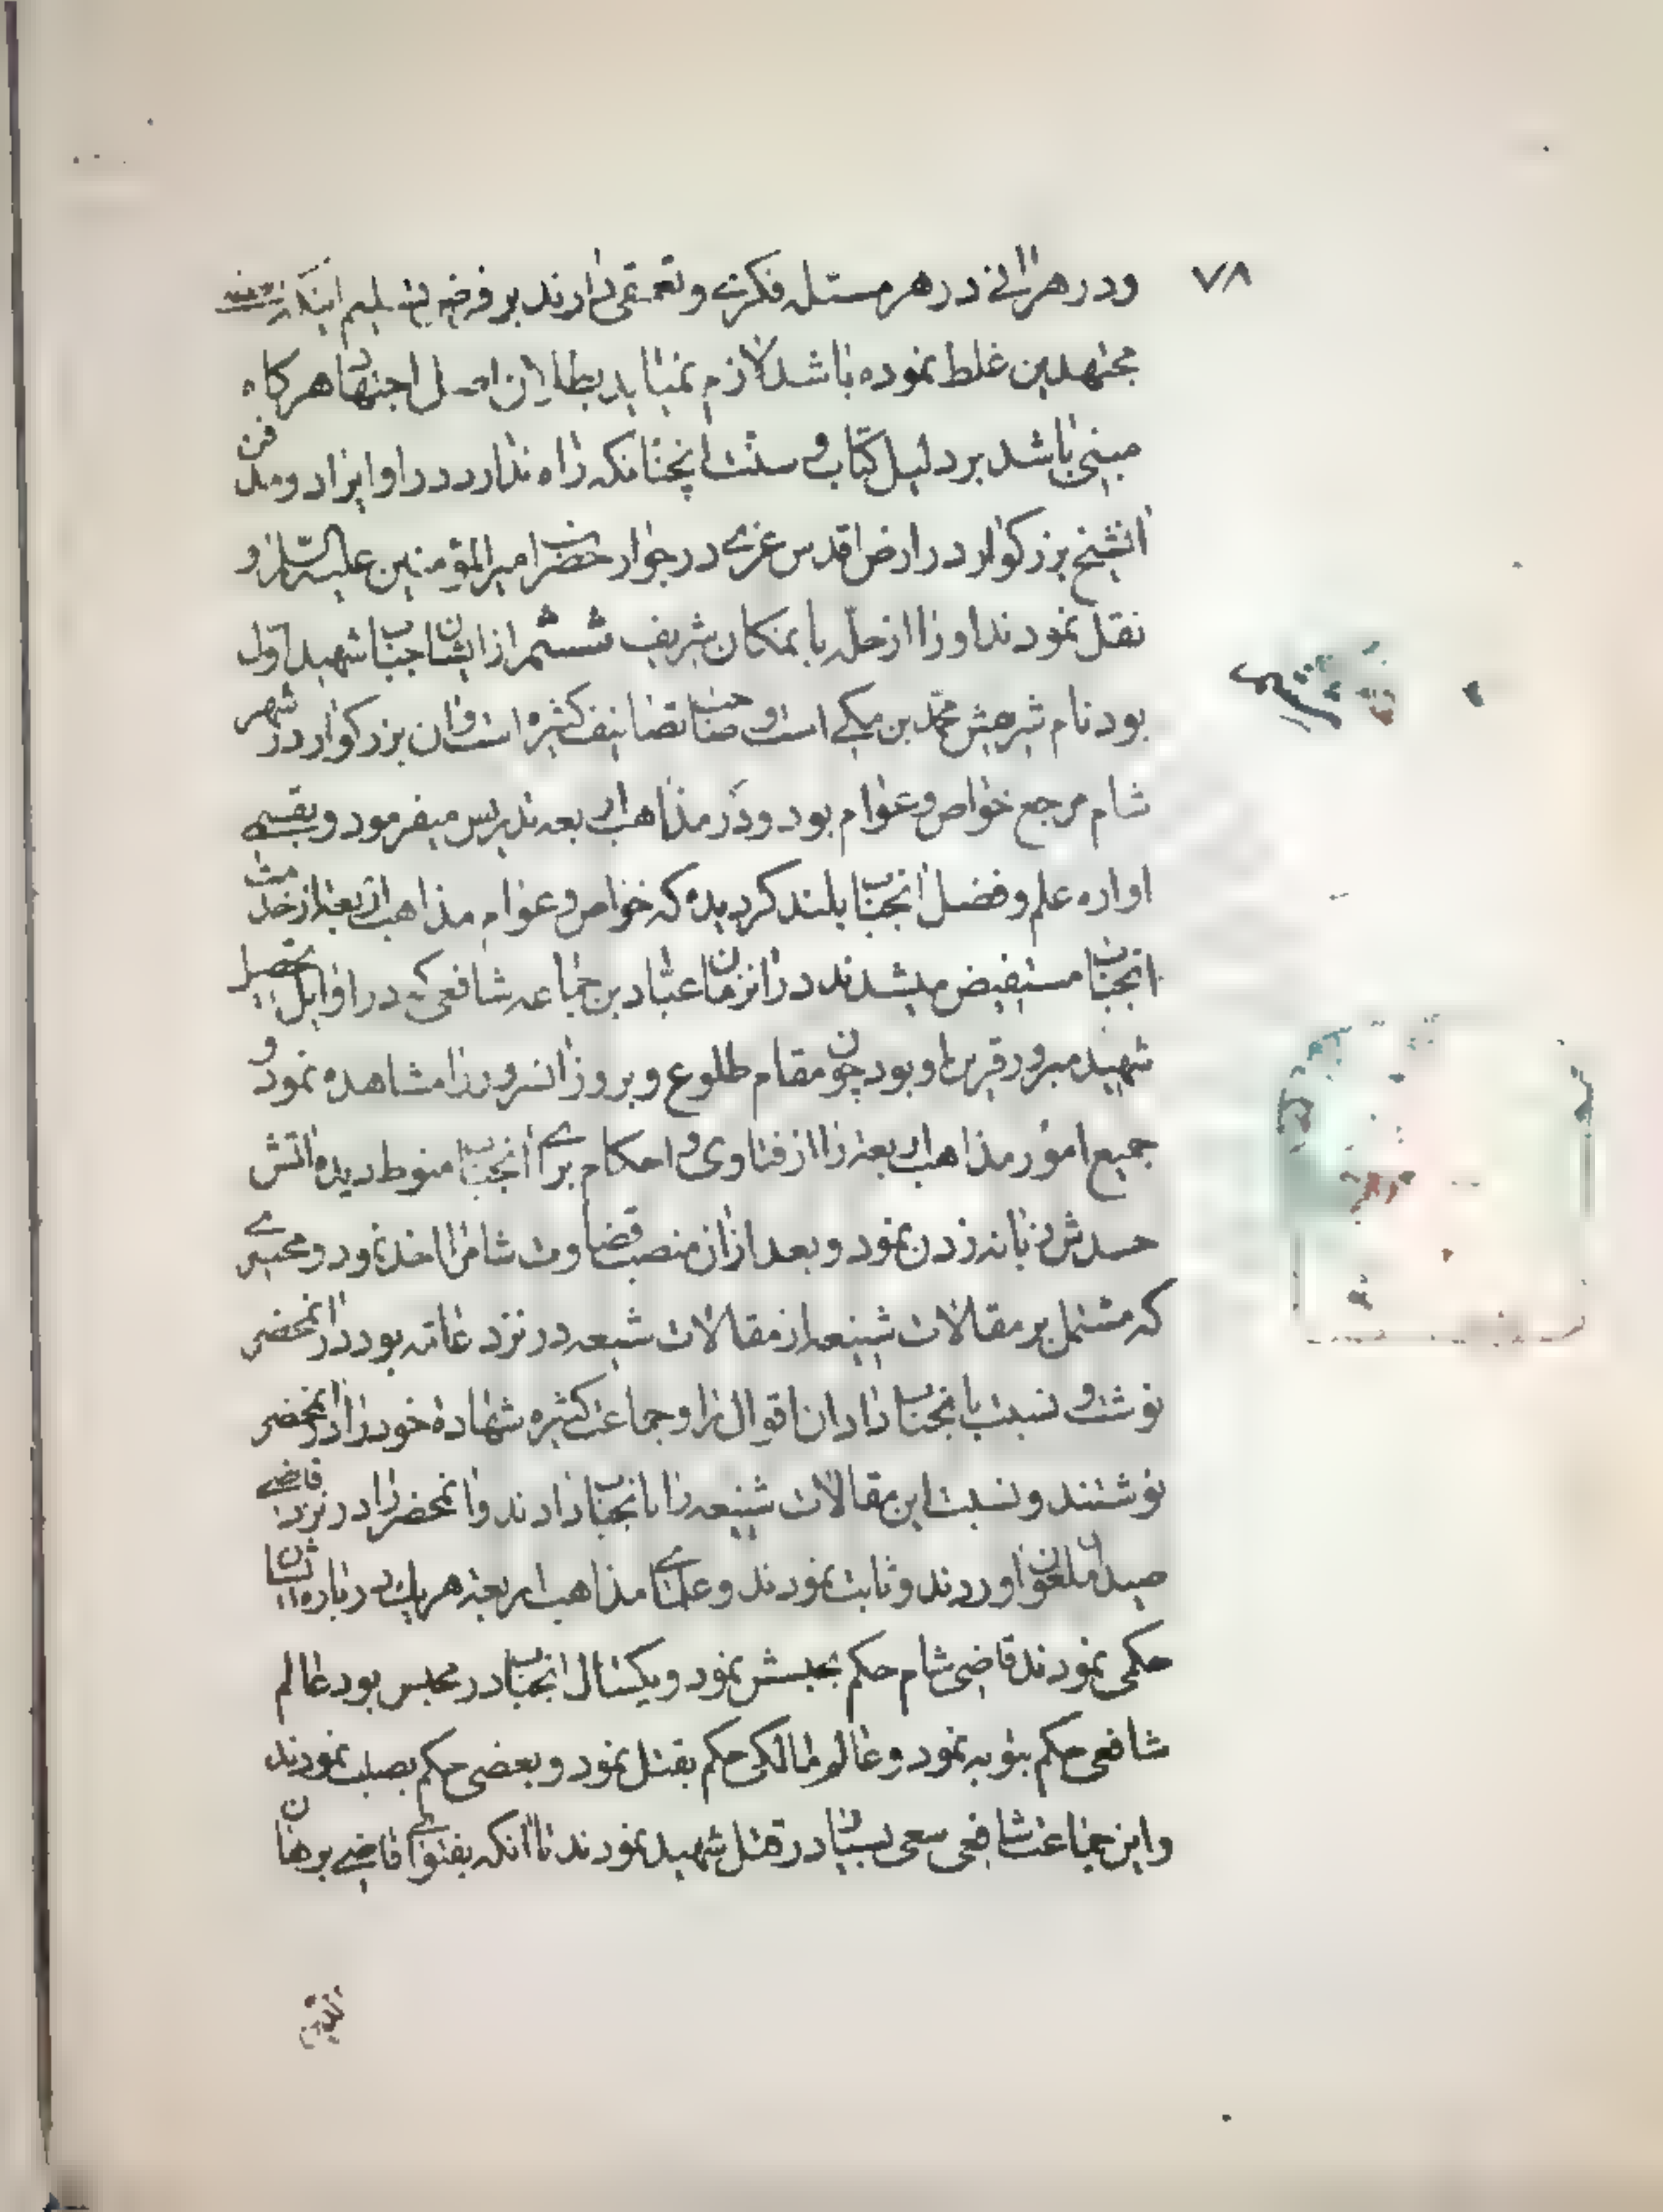 ۷۸
ودر هر آنی در هر مسئله فکری و تعمقی دارند بر فرض تسلیم اینکه بعضی
مجتهدین غلط نموده باشد لازم نمیاید بطلان اصل اجتهاد هر کاه
مبنی باشد بر دلیل کتاب و سنت آنچنانکه راه ندارد در او ایراد ومدفن
آنشیخ بزرکوار در ارض اقدس غری در جوار حضرت امیر المؤمنین علیه السلم و
نقل نمودند او را از حله بآنمکان شریف ششم از ایشان جناب شهید اول
بود نام شریفش محمد بن مکی است و صاحب تصانیف کثیره است و آن بزرکوار در شهر
شام مرجع خواص و عوام بود و در مذاهب اربعه تدریس میفرمود و بقسمی
اوازه علم و فضل آنجناب بلند کردیده که خواص و عوام مذاهب اربعه از خدمت
آنجناب مستفیض میشدند در آنزمان عباد بن جماعه شافعی که در اوایل تحصیل
شهید مبرور قرین او بود چون مقام طلوع و بروز آنسرور را مشاهده نمود و
جمیع امور مذاهب اربعه را از فتاوی و احکام برای آنجناب منوط دیده آتش
حسدش زبانه زدن نمود و بعد از آن منصب قضاوت شام را اخذ نمود و محضری
که مشتمل بر مقالات شنیعه از مقالات شیعه در نزد عامه بود در آنمحضر
نوشت و نسبت بآنجناب داد ان اقوال را و جماعت کثیره شهادة خود را در آنمحضر
نوشتند و نسبت این مقالات شنیعه را بانجناب دادند و آنمحضر را در نزد قاضی
صیدا ملعون آوردند و ثابت نمودند و علمای مذاهب اربعه هر یک در باره ایشان
حکمی نمودند قاضی شام حکم بحبسش نمود و یکسال آنجناب در محبس بود عالم
شافعی حکم بتوبه نمود و عالم مالکی حکم بقتل نمود و بعضی حکم بصلب نمودند
و ابن جماعت شافعی سعی بسیار در قتل شهید نمودند تا آنکه بفتوای قاضی برهان
الدین